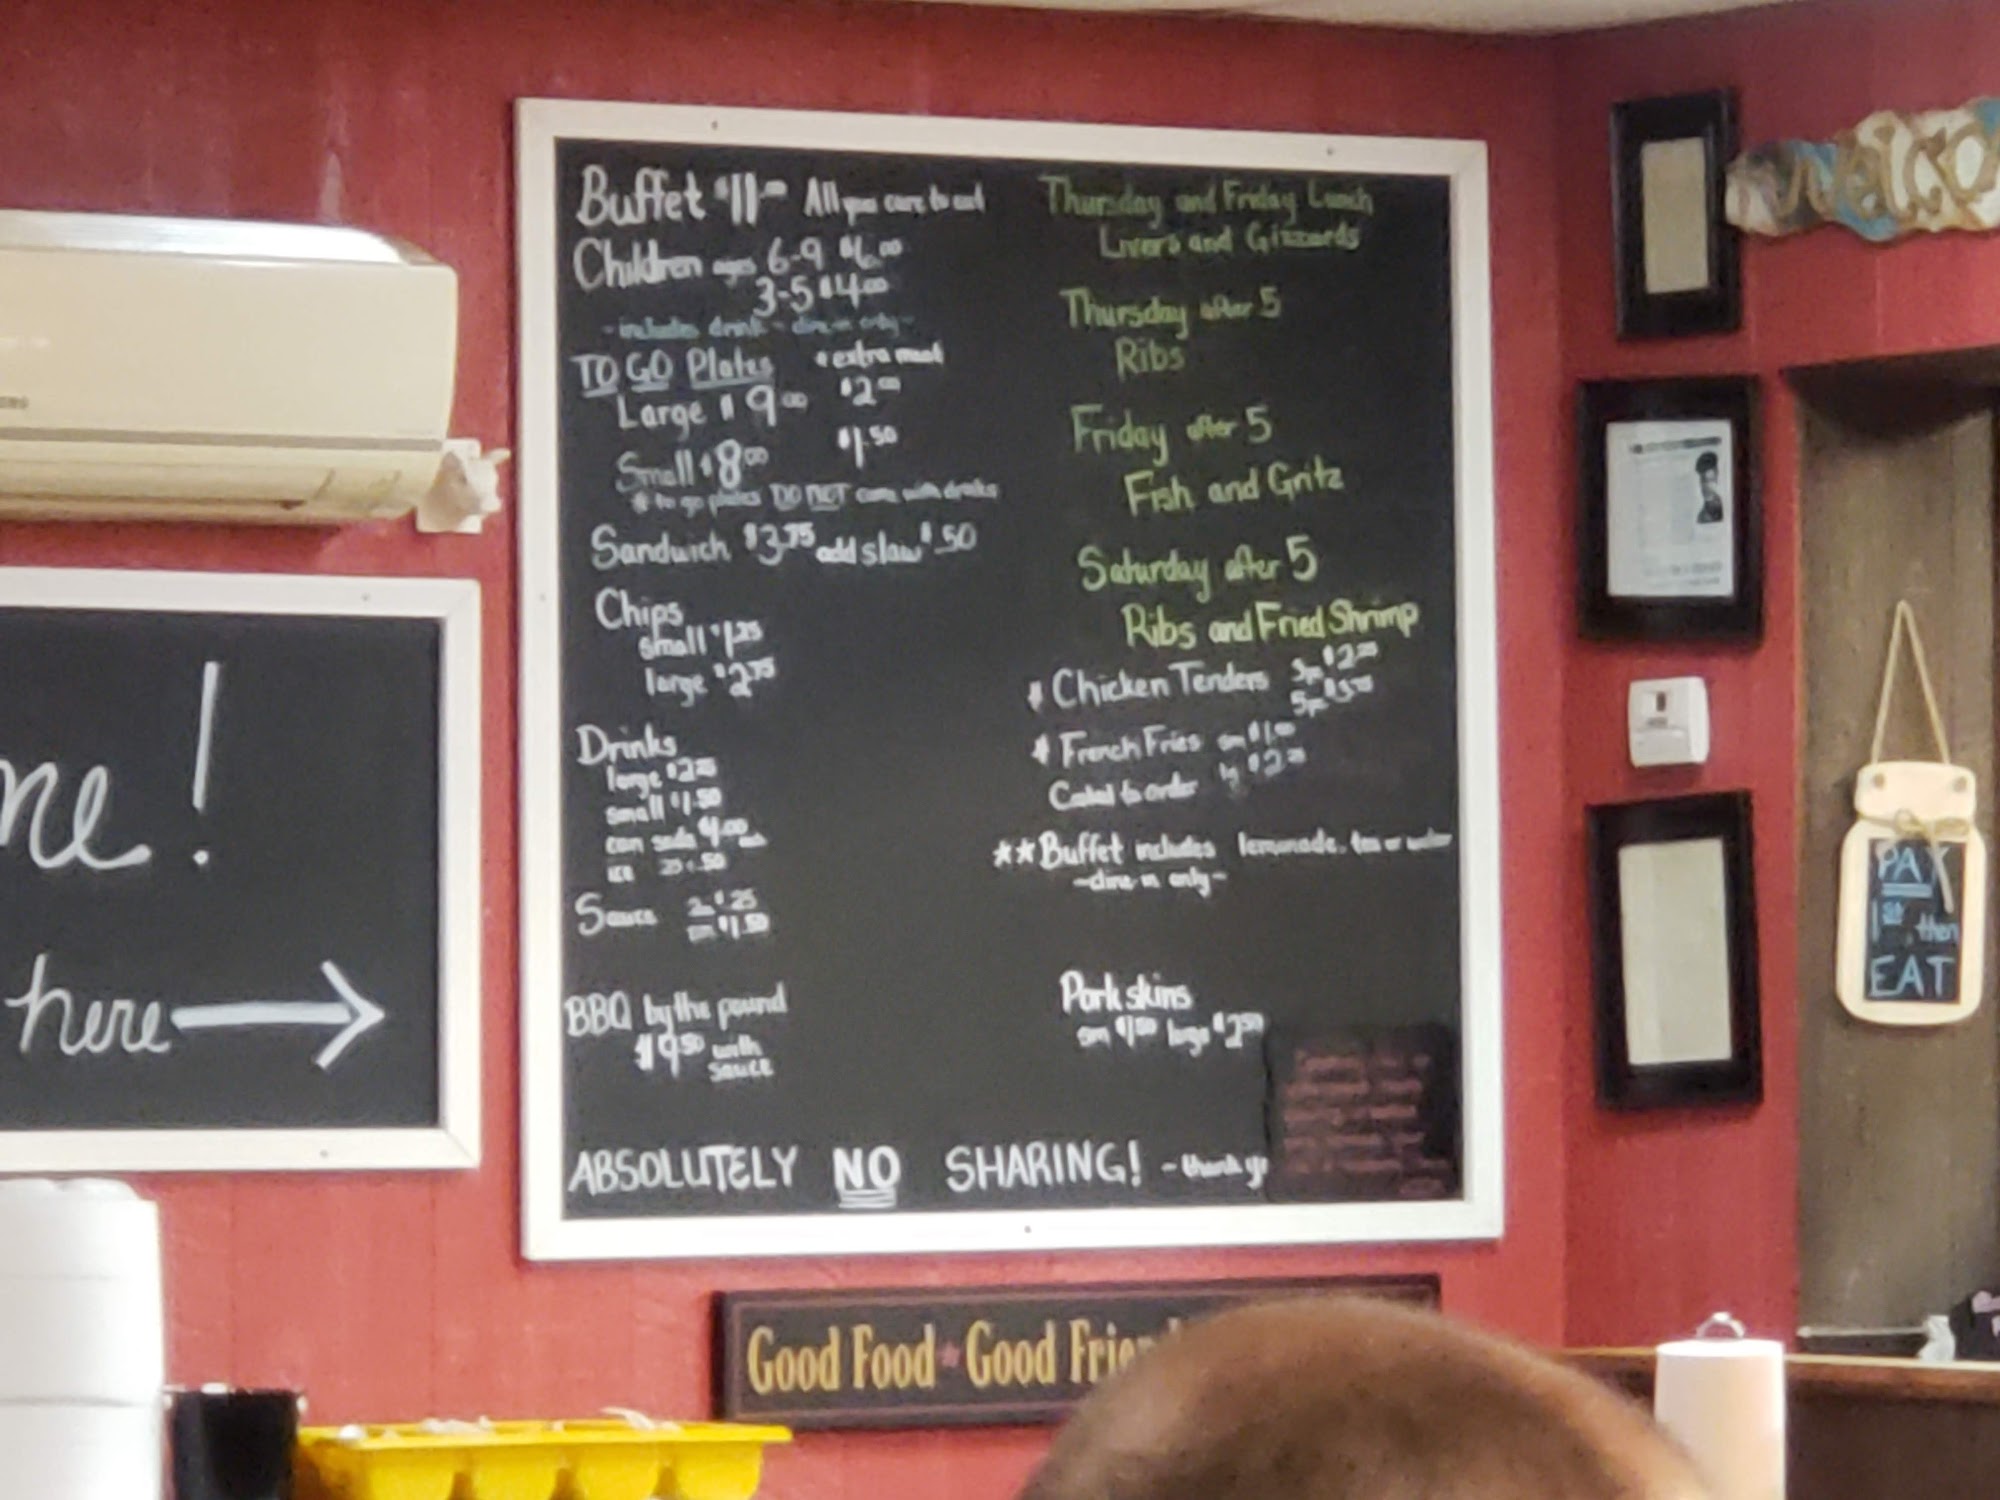 Buffet $11.00 All you care to eat
Children ages 6-9 $6.00
3-5 $4.00
-includes drink - dine in only-
TO GO Plates * extra meat
Large $9.00 $2.00
Small $8.00 $1.50
* to go plates DO NOT come with drinks
Sandwich $3.75 add slaw $.50
Chips
small $1.25
large $2.75
Drinks
large
small $1.50
can soda
ice
Sauce $.25
$1.50
BBQ by the pound
$9.50 with
sauce
Thursday and Friday Lunch
Livers and Gizzards
Thursday after 5
Ribs
Friday after 5
Fish and Gritz
Saturday after 5
Ribs and Fried Shrimp
* Chicken Tenders 3pc
5pc
* French Fries sm $1.00
Cooked to order lg
**Buffet includes lemonade, tea or water
-dine in only-
Pork skins
sm large $2.50
ABSOLUTELY NO SHARING! -thank y
me!
here →
Good Food * Good Frien
welco
PAY
1st, then
EAT